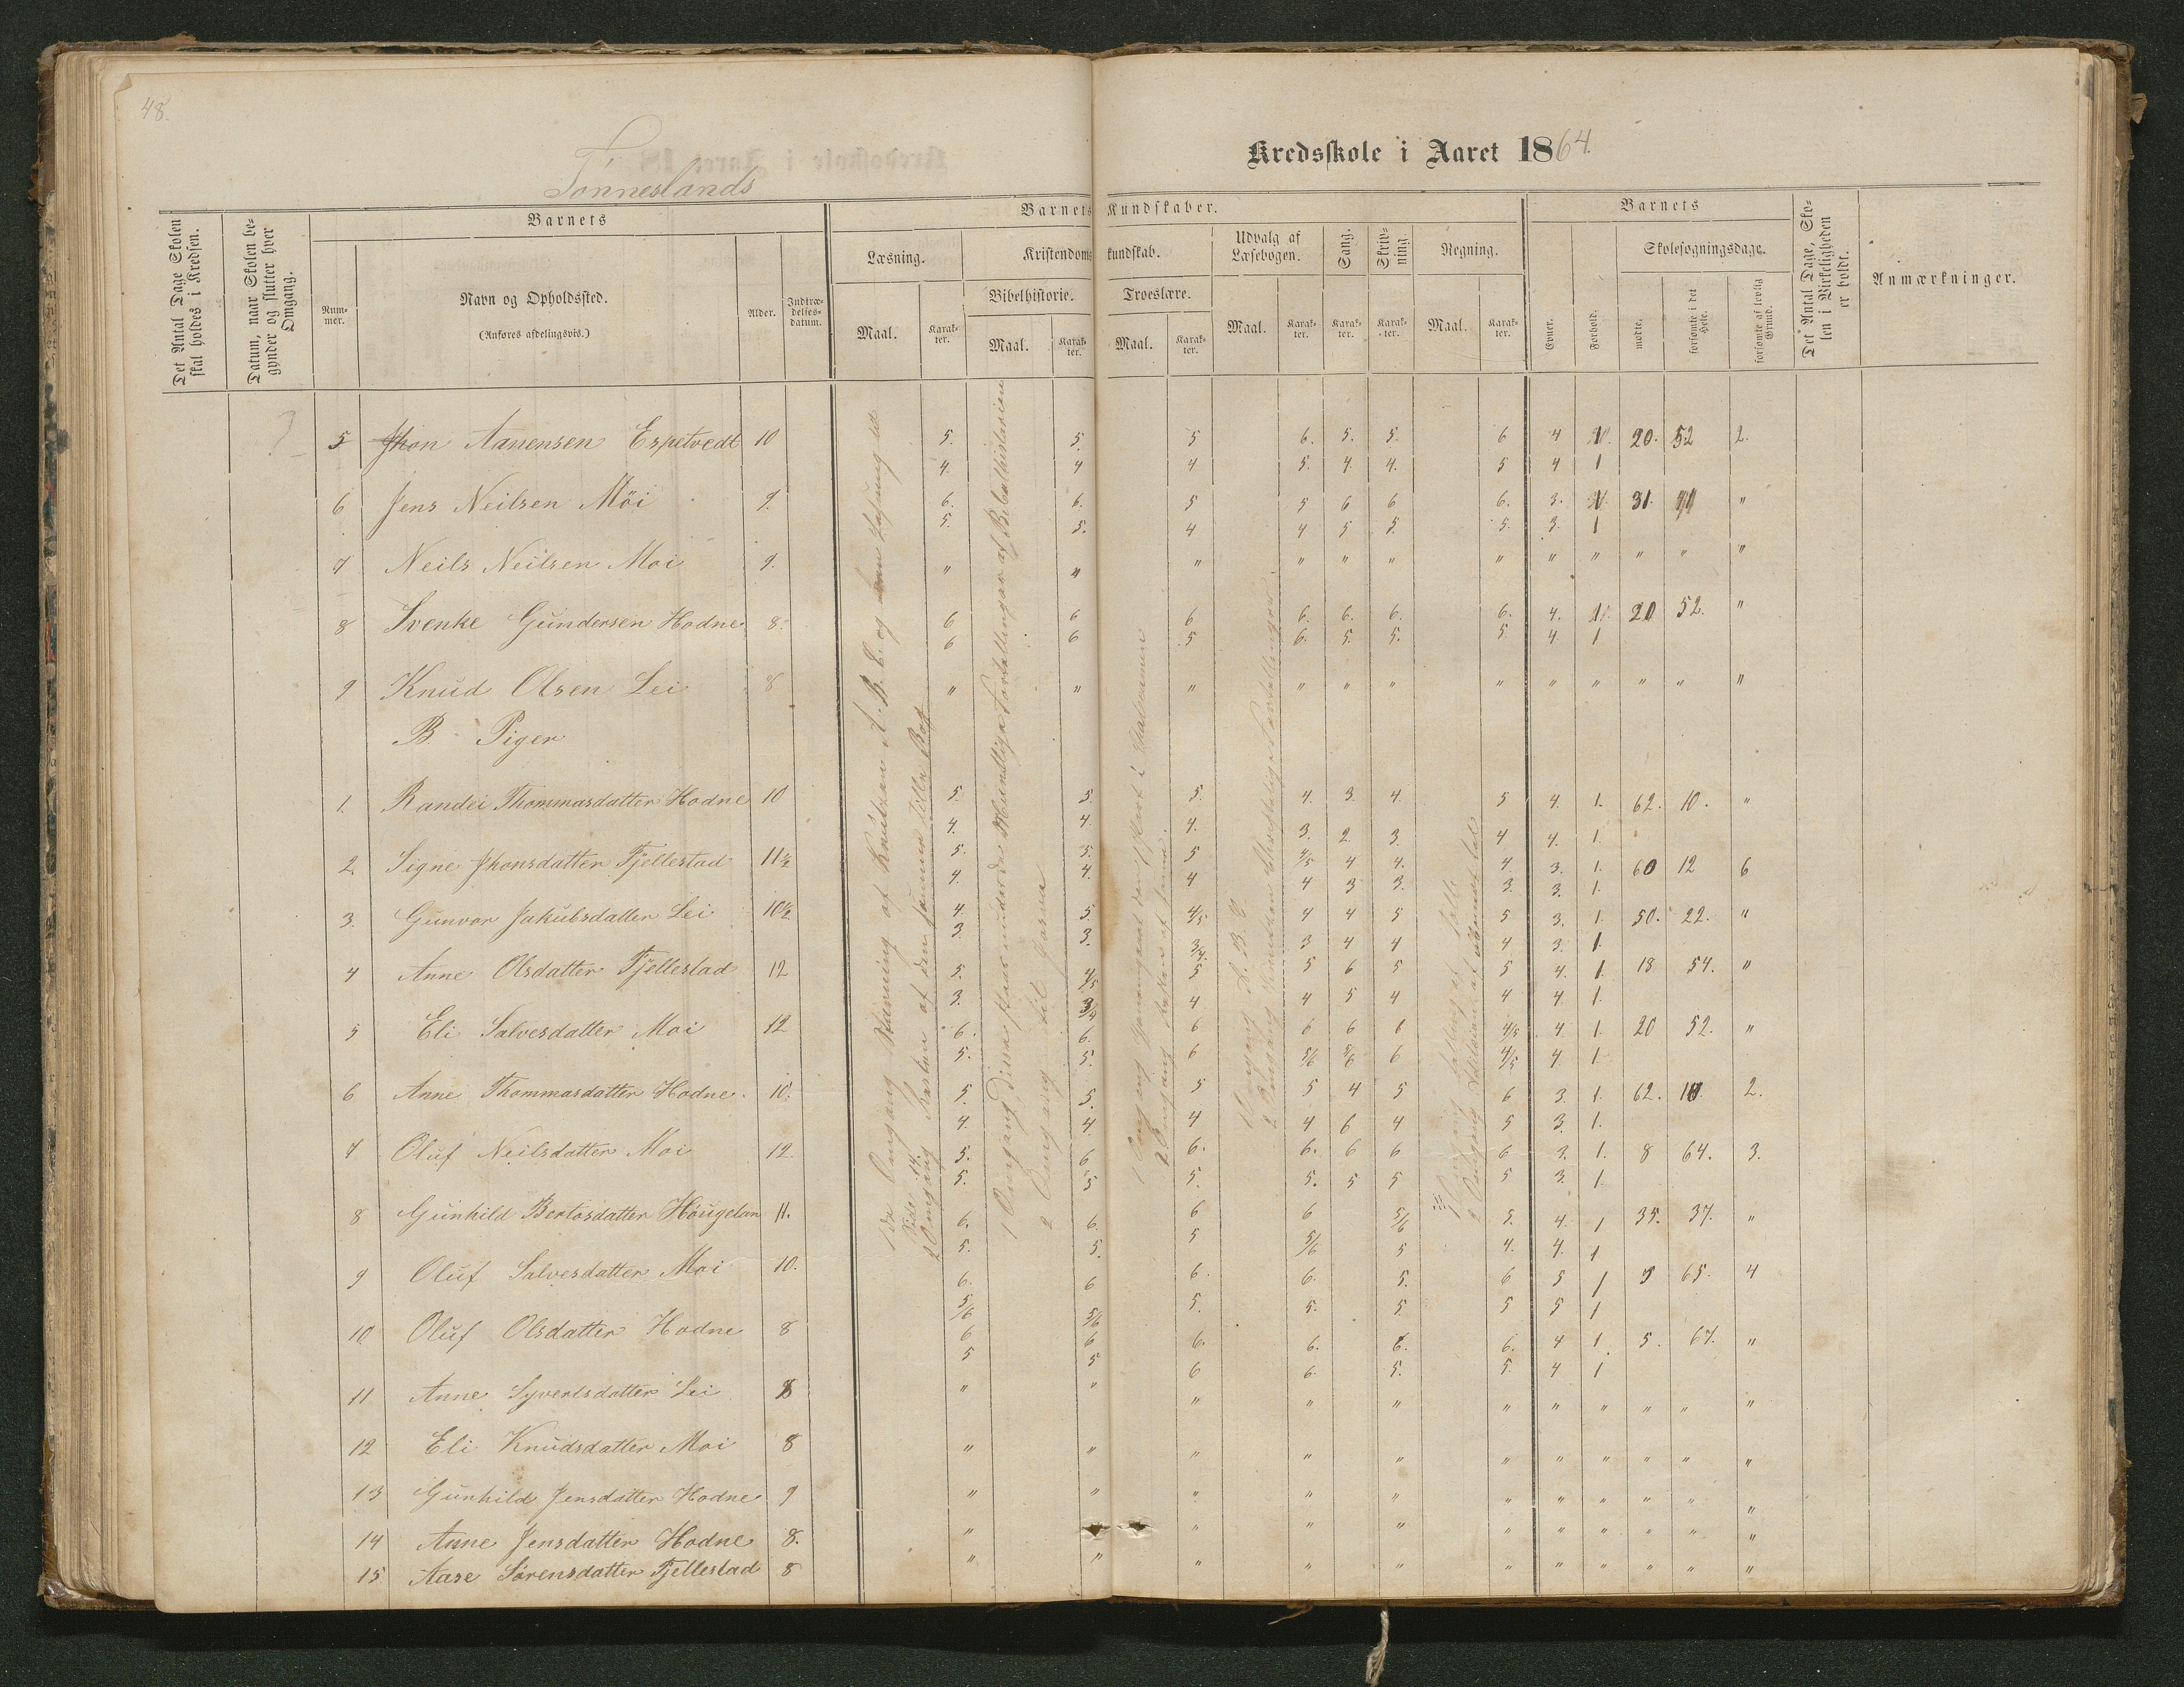 48.
Tonneslands
Kredsskole i Aaret 1864.
Det Antal Dage Skolen skal holdes i Kredsen.
Datum, naar Skolen begynder og slutter hver Omgang.
Barnets
Nummer.
Navn og Opholdssted.
(Anføres afdelingsvis.)
Alder.
Indtrædelsesdatum.
Barnets Kundskaber.
Læsning.
Maal.
Karakter.
Kristendomskundskab.
Bibelhistorie.
Maal.
Karakter.
Troeslære.
Maal.
Karakter.
Udvalg af Læsebogen.
Maal.
Karakter.
Sang.
Karakter.
Skrivning.
Karakter.
Regning.
Maal.
Karakter.
Barnets
Evner.
Forhold.
Skolesøgningsdage.
mødte.
forsømte i det Hele.
forsømte af lovlig Grund.
Det Antal Dage, Skolen i Virkeligheden er holdt.
Anmærkninger.
5 Jhon Aanensen Espetvedt 10 5. 5. 5 6. 5. 5. 6 4 1. 20. 52 2.
4. 4 4 5. 4. 4. 5 4 1
6 Jens Neilsen Möi 9. 6. 6. 5 5 6 6 6. 3. 1. 31. "
5. 5. 4 4 5 5. 5. 3. 1
7 Neils Neilsen Moi 9. " " " " " " " " " " " "
8 Svenke Gundersen Hodne 8. 6 6 6 6. 6. 6. 6. 4. 1. 20 52. "
6 6 5 6. 5. 5. 5. 4 1
9 Knud Olsen Lei 8 " " " " " " " " " " " "
B Piger
1. Randei Thommasdatter Hodne 10 5. 5. 5. 4. 3. 4. 5 4. 1. 62. 10. "
4. 4. 4. 3. 2. 3. 4 4. 1.
2. Signe Jhonsdatter Fjellestad 11½ 5. 5. 5 4/5 4 4. 4. 3. 1. 60 12 6
4. 4. 4 4 3 3. 3. 3. 1.
3. Gunvor Jakubsdatter Lei 10½ 4. 5. 4/5 4 4 5 5 3. 1. 50. 22. "
3. 3. 3/4. 3 4 4 4 3. 1.
4 Anne Olsdatter Fjellestad 12 5. 4/5 5 5 6 5 5 4. 1. 18 54. "
3. 3/4 4 4 5 4 4 4 1.
5 Eli Salvesdatter Moi 12 6. 6. 6 6 6 6 4/5 4 1. 20 52. "
5. 5. 6 5/6 5/6 6 4/5 4 1.
6 Anne Thommasdatter Hodne. 10. 5. 5. 5 5 4 5 6 3. 1. 62. 10. 2.
4. 4. 4 4 6 4 5 3. 1.
7 Oluf Neilsdatter Moi 12 5. 6 6. 6. 6 6 6 3. 1. 8 64. 3.
5. 5 5. 5. 5 5 5 3. 1.
8 Gunhild Bertosdatter Höugelan 11. 6. 6. 6 6 5/6 5. 4. 1 35. 37. "
5. 5. 5 5/6 5 4. 4. 1
9 Oluf Salvesdatter Moi 10. 6. 6 6. 6. 5. 6 5 1 65. 4
5/6 5/6 5. 5. 5. 5 5 1
10 Oluf Olsdatter Hodne 8 6 6 6. 6. 6. 6. 4 1. 5. 67. "
5 5 6 6. 5. 5. 4 1
11 Anne Syvertsdatter Lei 8 " " " " " " " " " " "
12 Eli Knudsdatter Moi 8 " " " " " " " " " " "
13 Gunhild Jensdatter Hodne 9 " " " " " " " " " " "
14 Anne Jensdatter Hodne 8. " " " " " " " " "
15 Aase Sörensdatter Fjellestad 8 " " " " " " " " " " "
1de Omgang af Knudsen A. B. C. og Læsning ud Side 14.
2 Omgang Resten af den samme lille Bog
1 Omgang mundtlige Fortællinger af Bibelhistorien
2 Omgang til
1 Omgang
2 Omgang Resten af samme.
1 Omgang A. B. C.
2 Omgang Knudsen Christelige Fortællinger
1 Omgang
2 Omgang Addition af